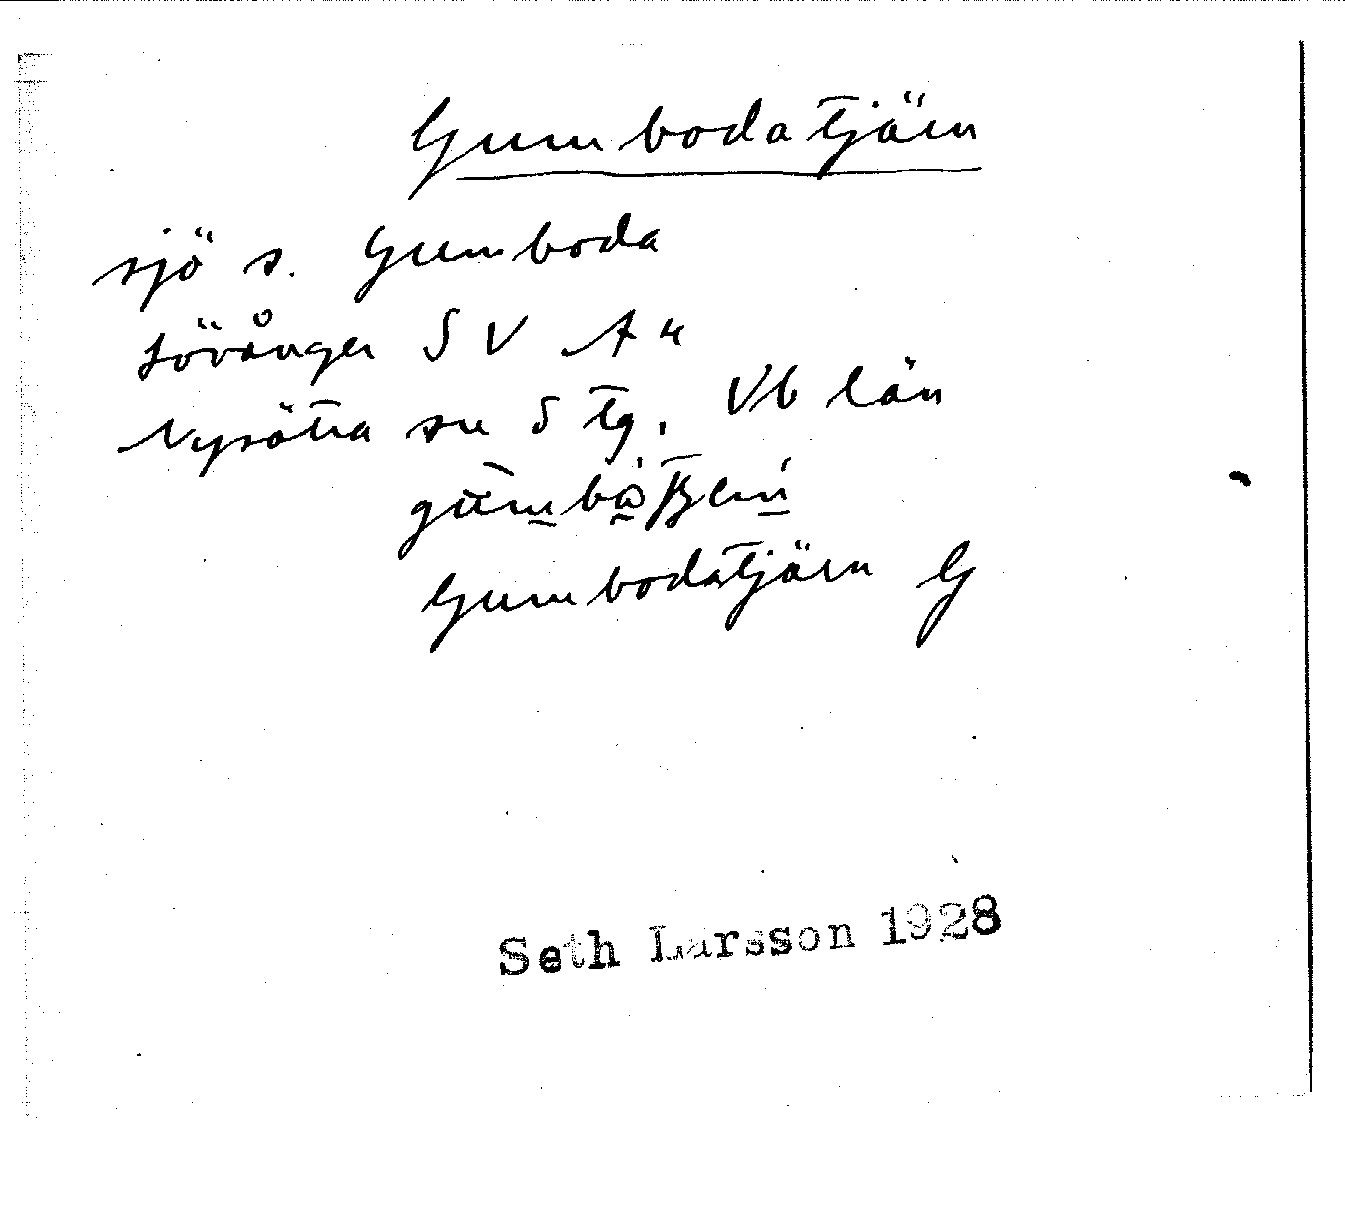 Gumbodatjärn
sjö s. Gumboda
Lövånger S V A 4
Nysätra sn S tg. Vb län
Gumbodatjärn G
Seth Larsson 1928